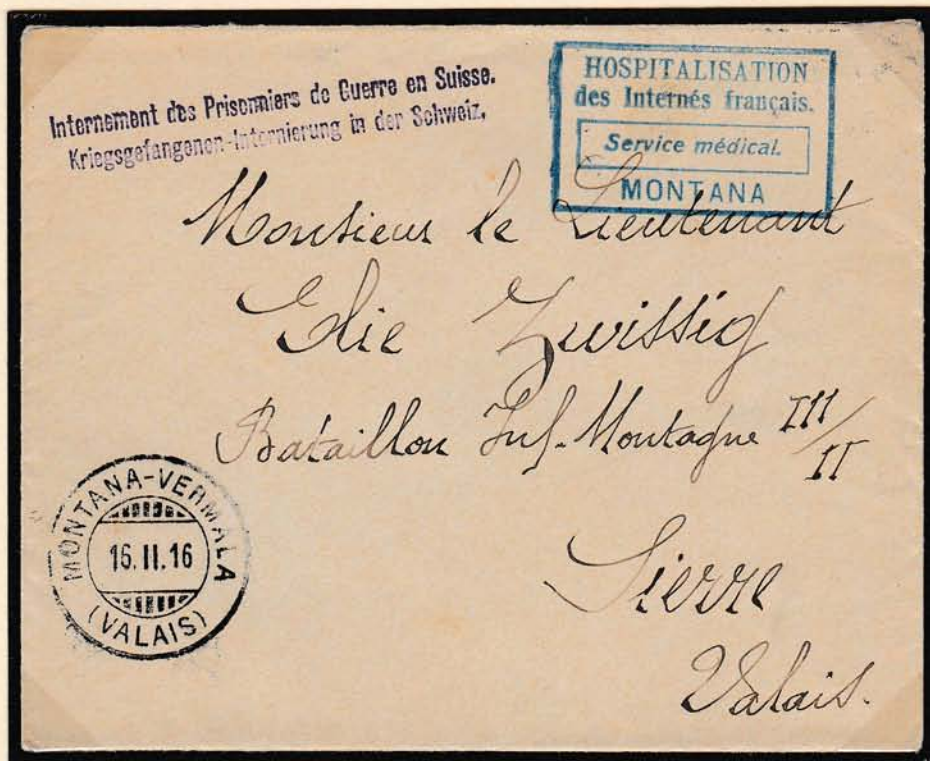 Internement des Prisonniers de Guerre en Suisse.
Kriegsgefangenen-Internierung in der Schweiz.
HOSPITALISATION
des Internés français.
Service médical.
MONTANA
Monsieur le Lieutenant
Elie Zwissig
Bataillon Inf. Montagne III/II
Sierre
Valais.
MONTANA-VERMALA
16.II.16
(VALAIS)